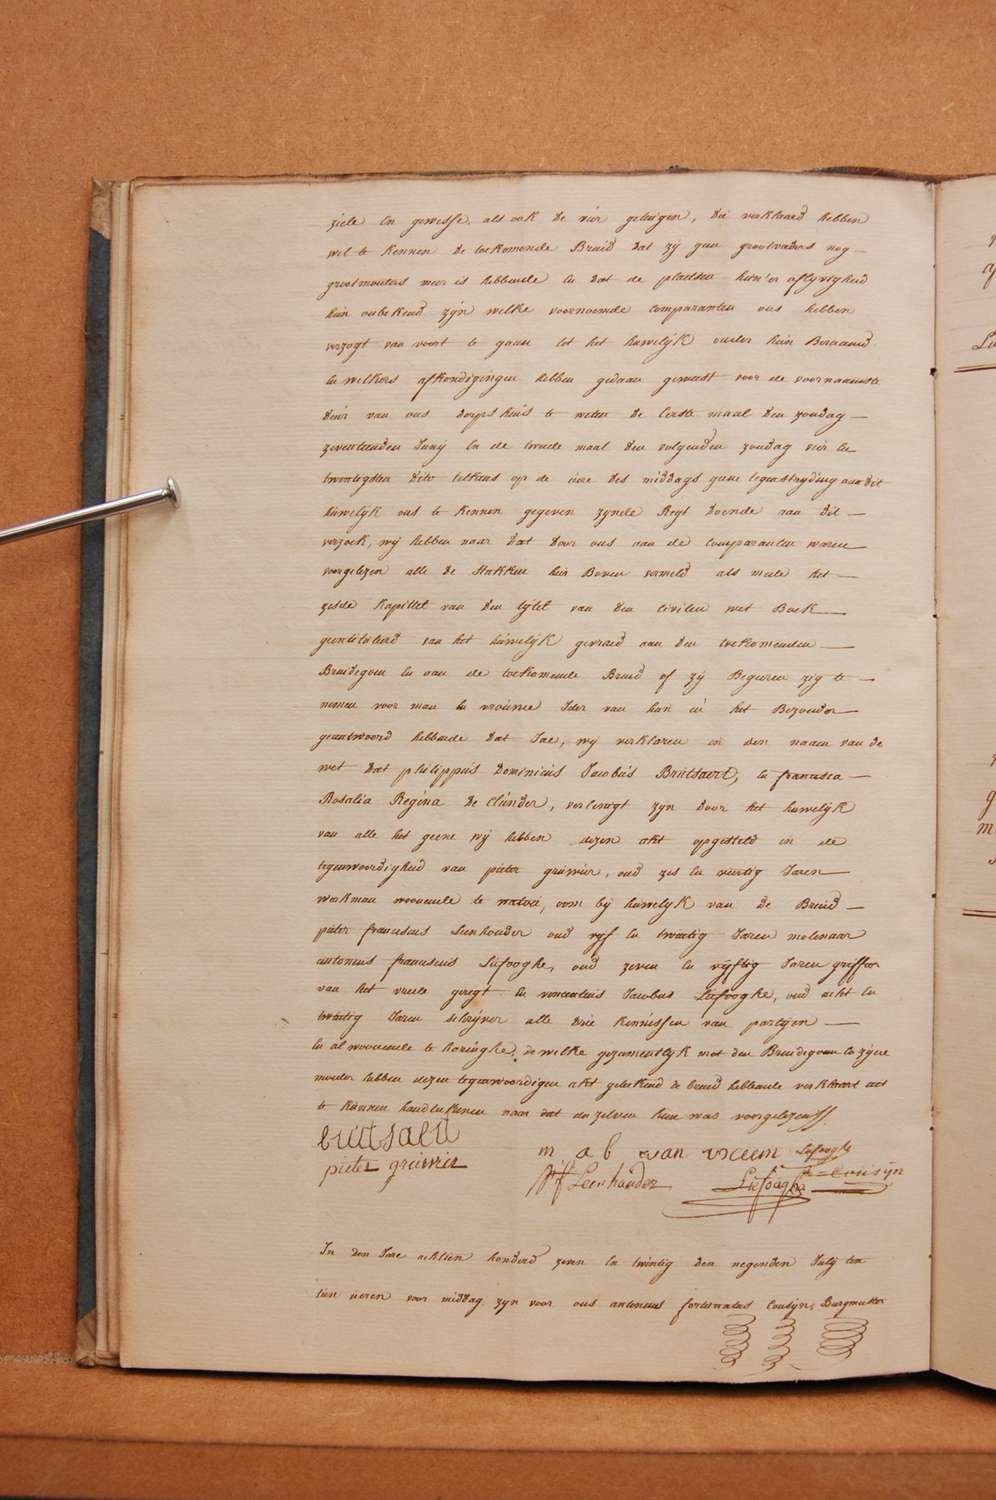 ziele en gewesse, als ook de vier getuigen, die verklaard hebben
wel te kennen de toekomende Bruid dat zij geen grootvaders nog
grootmouters meer is hebbende en dat de plaetsen hun'er aflyvigheid
hun onbekend zyn welke voornoemde comparanten ons hebben
verzogt van voort te gaen tot het huwelijk onder hun Beraemd
en welkers afkondigingen hebben gedaen geweest voor de voornaemste
deur van ons dorpshuis te weten de Eerste maal den zondag
zeventienden Junij en de tweede maal den volgenden zondag vier en
twintigsten dito telkens op de üre des middags geene tegenstryding aan dit
huwelyk ons te kennen gegeven zynde Regt doende aan dit
verzoek, wij hebben naar dat door ons aan de comparanten waren
voorgelezen alle de stukken hier Boven vermeld als mede het
zesde kapittel van den tytel van den civilen wet Boek
geintituleerd van het huwelijk gevraed aan den toekomenden
Bruidegom en aan de toekomende Bruid of zij Begeeren zig te
nemen voor man en vrouwe Ider van hun in het Bezonder
geantwoord hebbende dat Jae, wij verklaren in den naem van de
wet dat philippus Dominicus Jacobus Brutsaert, en francisca
Rosalia Regina De Clünder, vereenigt zyn door het huwelijk
van alle het geene wij hebben dezen akt opgesteld in de
tegenwoordigheid van pieter gruwier, oud zes en veertig Jaren
werkman woonende te watou, oom bij huwelyk van de Bruid
pieter franciscus Leenhouder oud vyf en twintig Jaren molenaar
antonius franciscus Liefooghe, oud zeven en vyftig Jaren griffier
van het vrede geregt en vincentius Jacobus Liefooghe, oud acht en
twintig Jaren schryver alle drie kennissen van partyen
en al woonende te haringhe, de welke gezamentlyk met den Bruidegom en zijne
moeder hebben dezen tegenwoordigen akt geteekend de bruid hebbende verklaart niet
te kunnen handteekenen naar dat den zelven hun was voorgelezen
brutsaert
m a b van vreem Liefooghe
pieter gruwier
pf Leenhouder Liefooghe Cousyn
In den Jare achtien honderd zeven en twintig den negenden Julij ten
tien ueren voor middag zyn voor ons antonius fortunatus Cousyn, Burgmeester